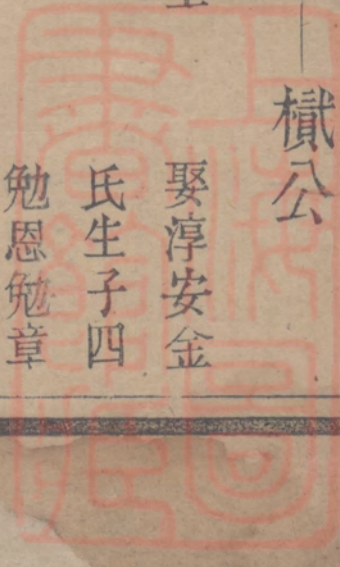 樻公
娶淳安金
氏生子四
勉恩勉章